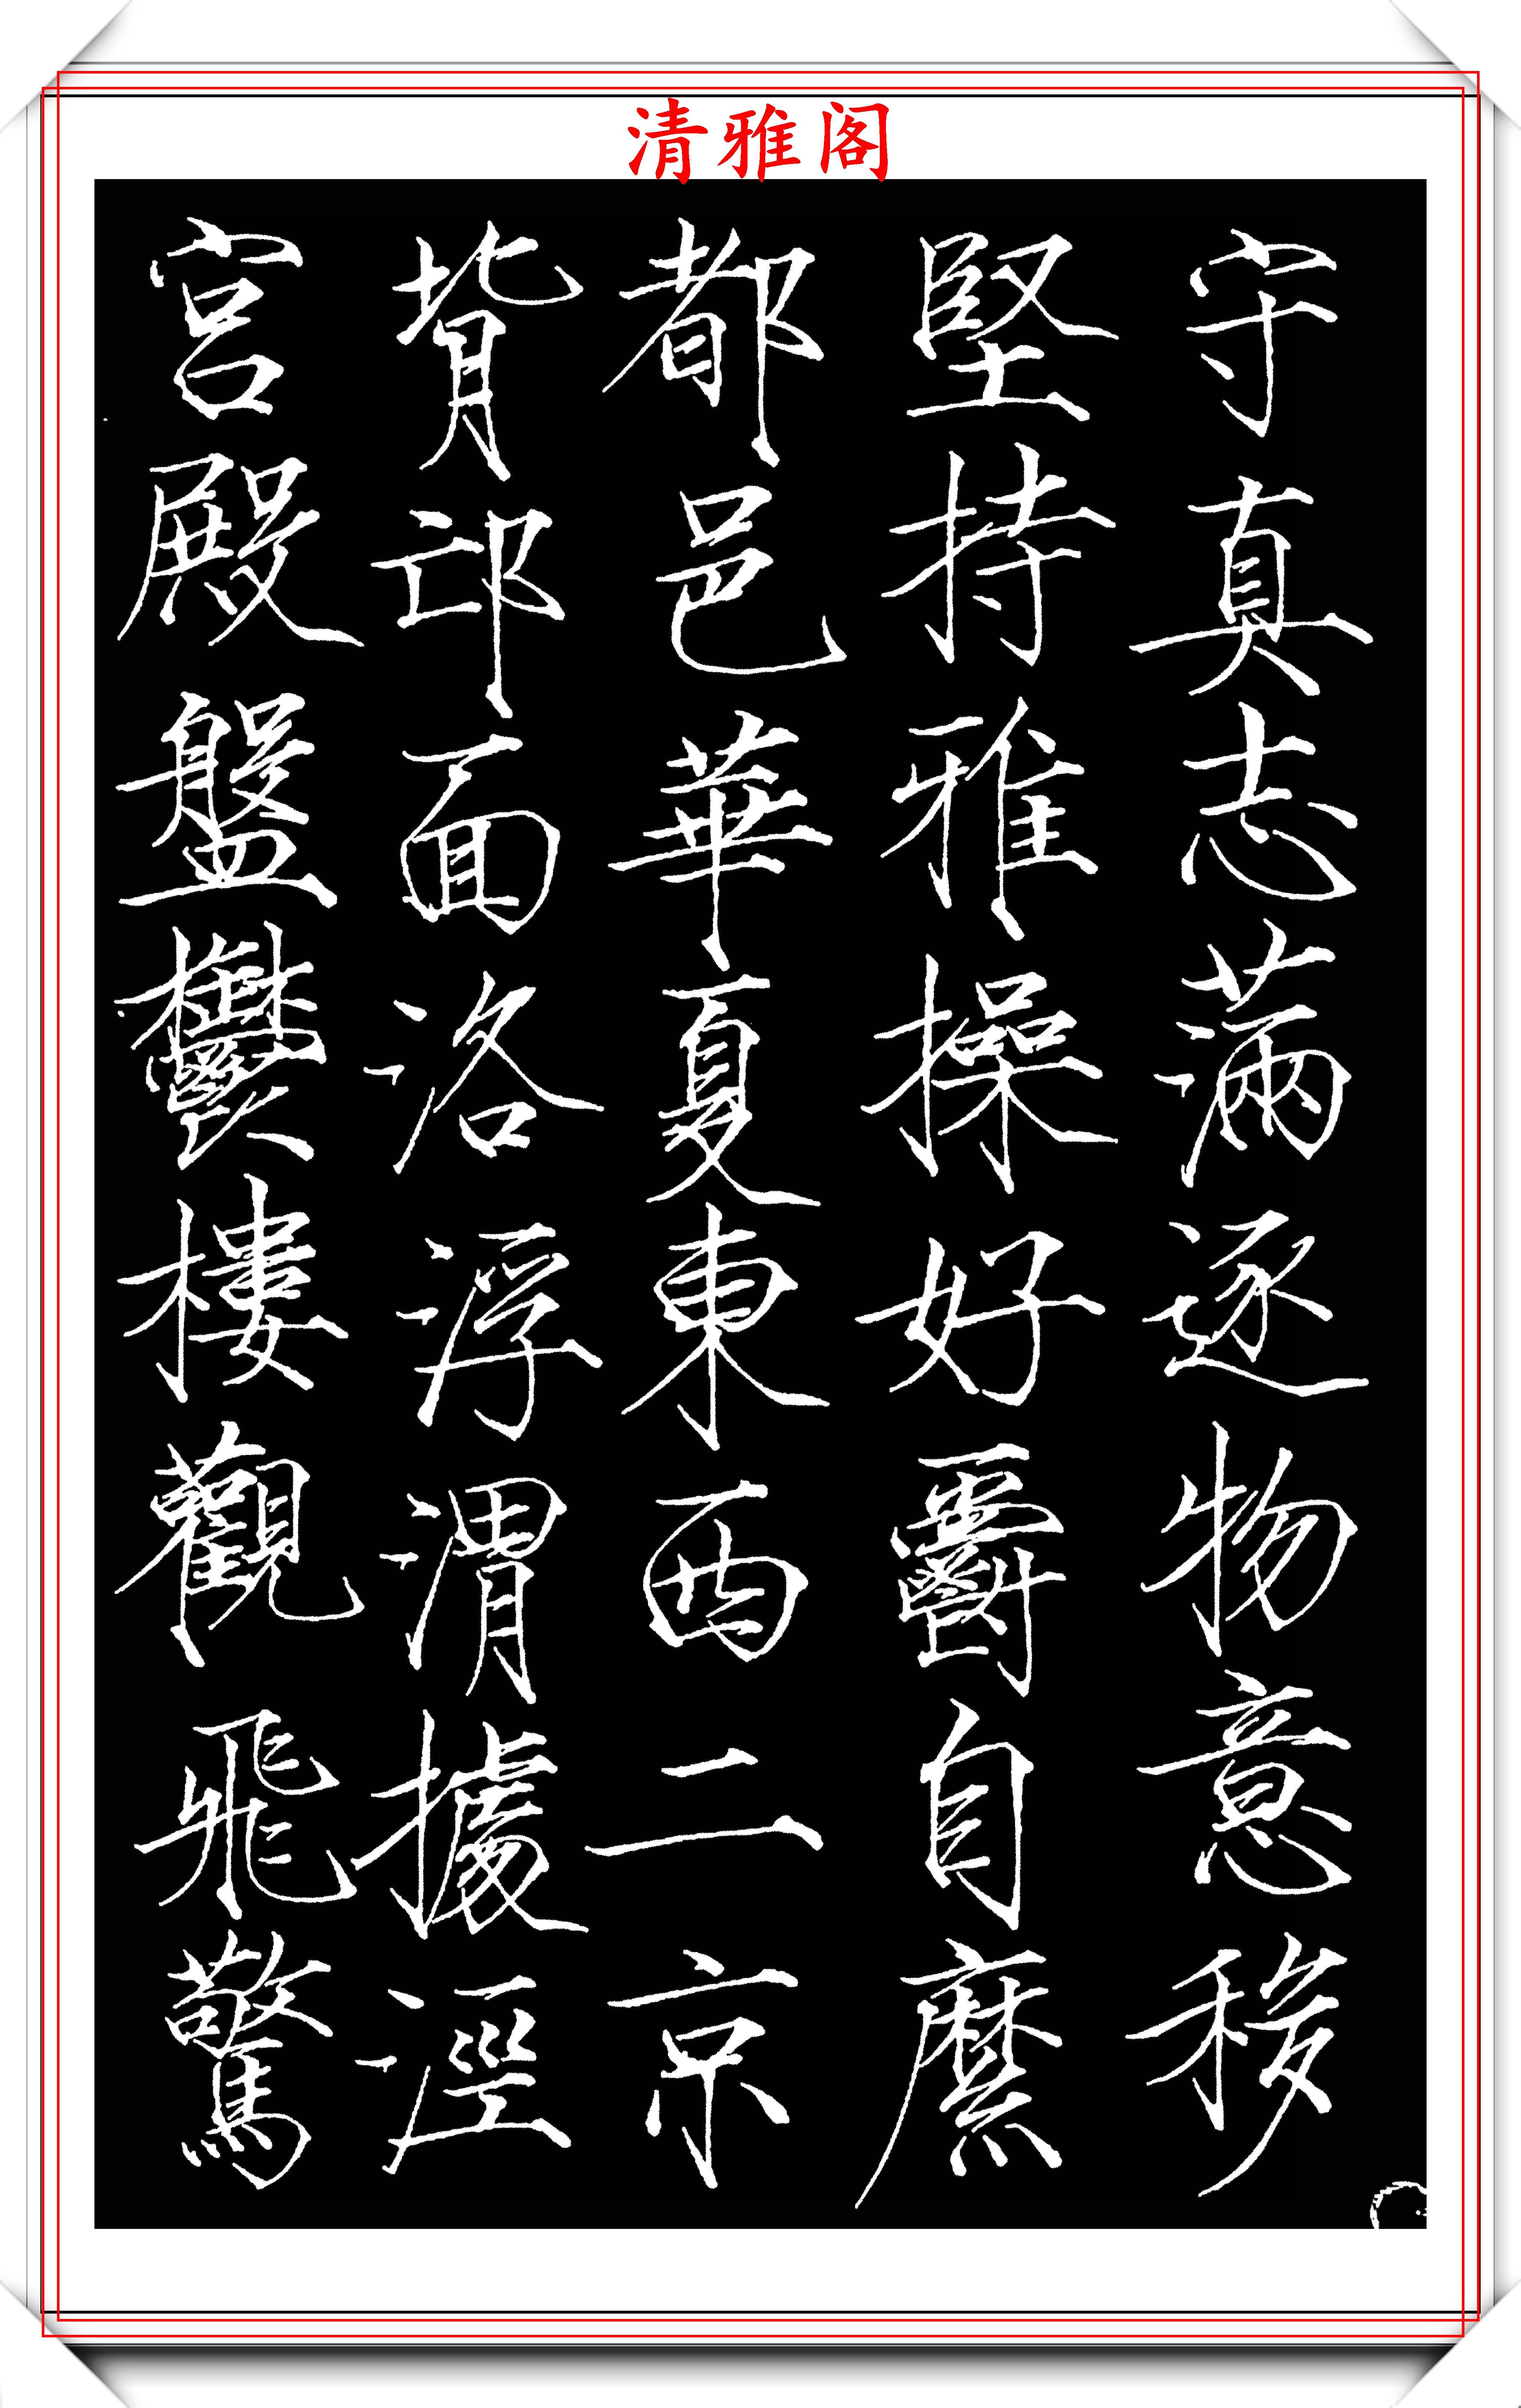 清雅阁
守真志滿逐物意移
堅持雅操好爵自縻
都邑華夏東西二京
背邙面洛浮渭據涇
宮殿盤鬱樓觀飛驚